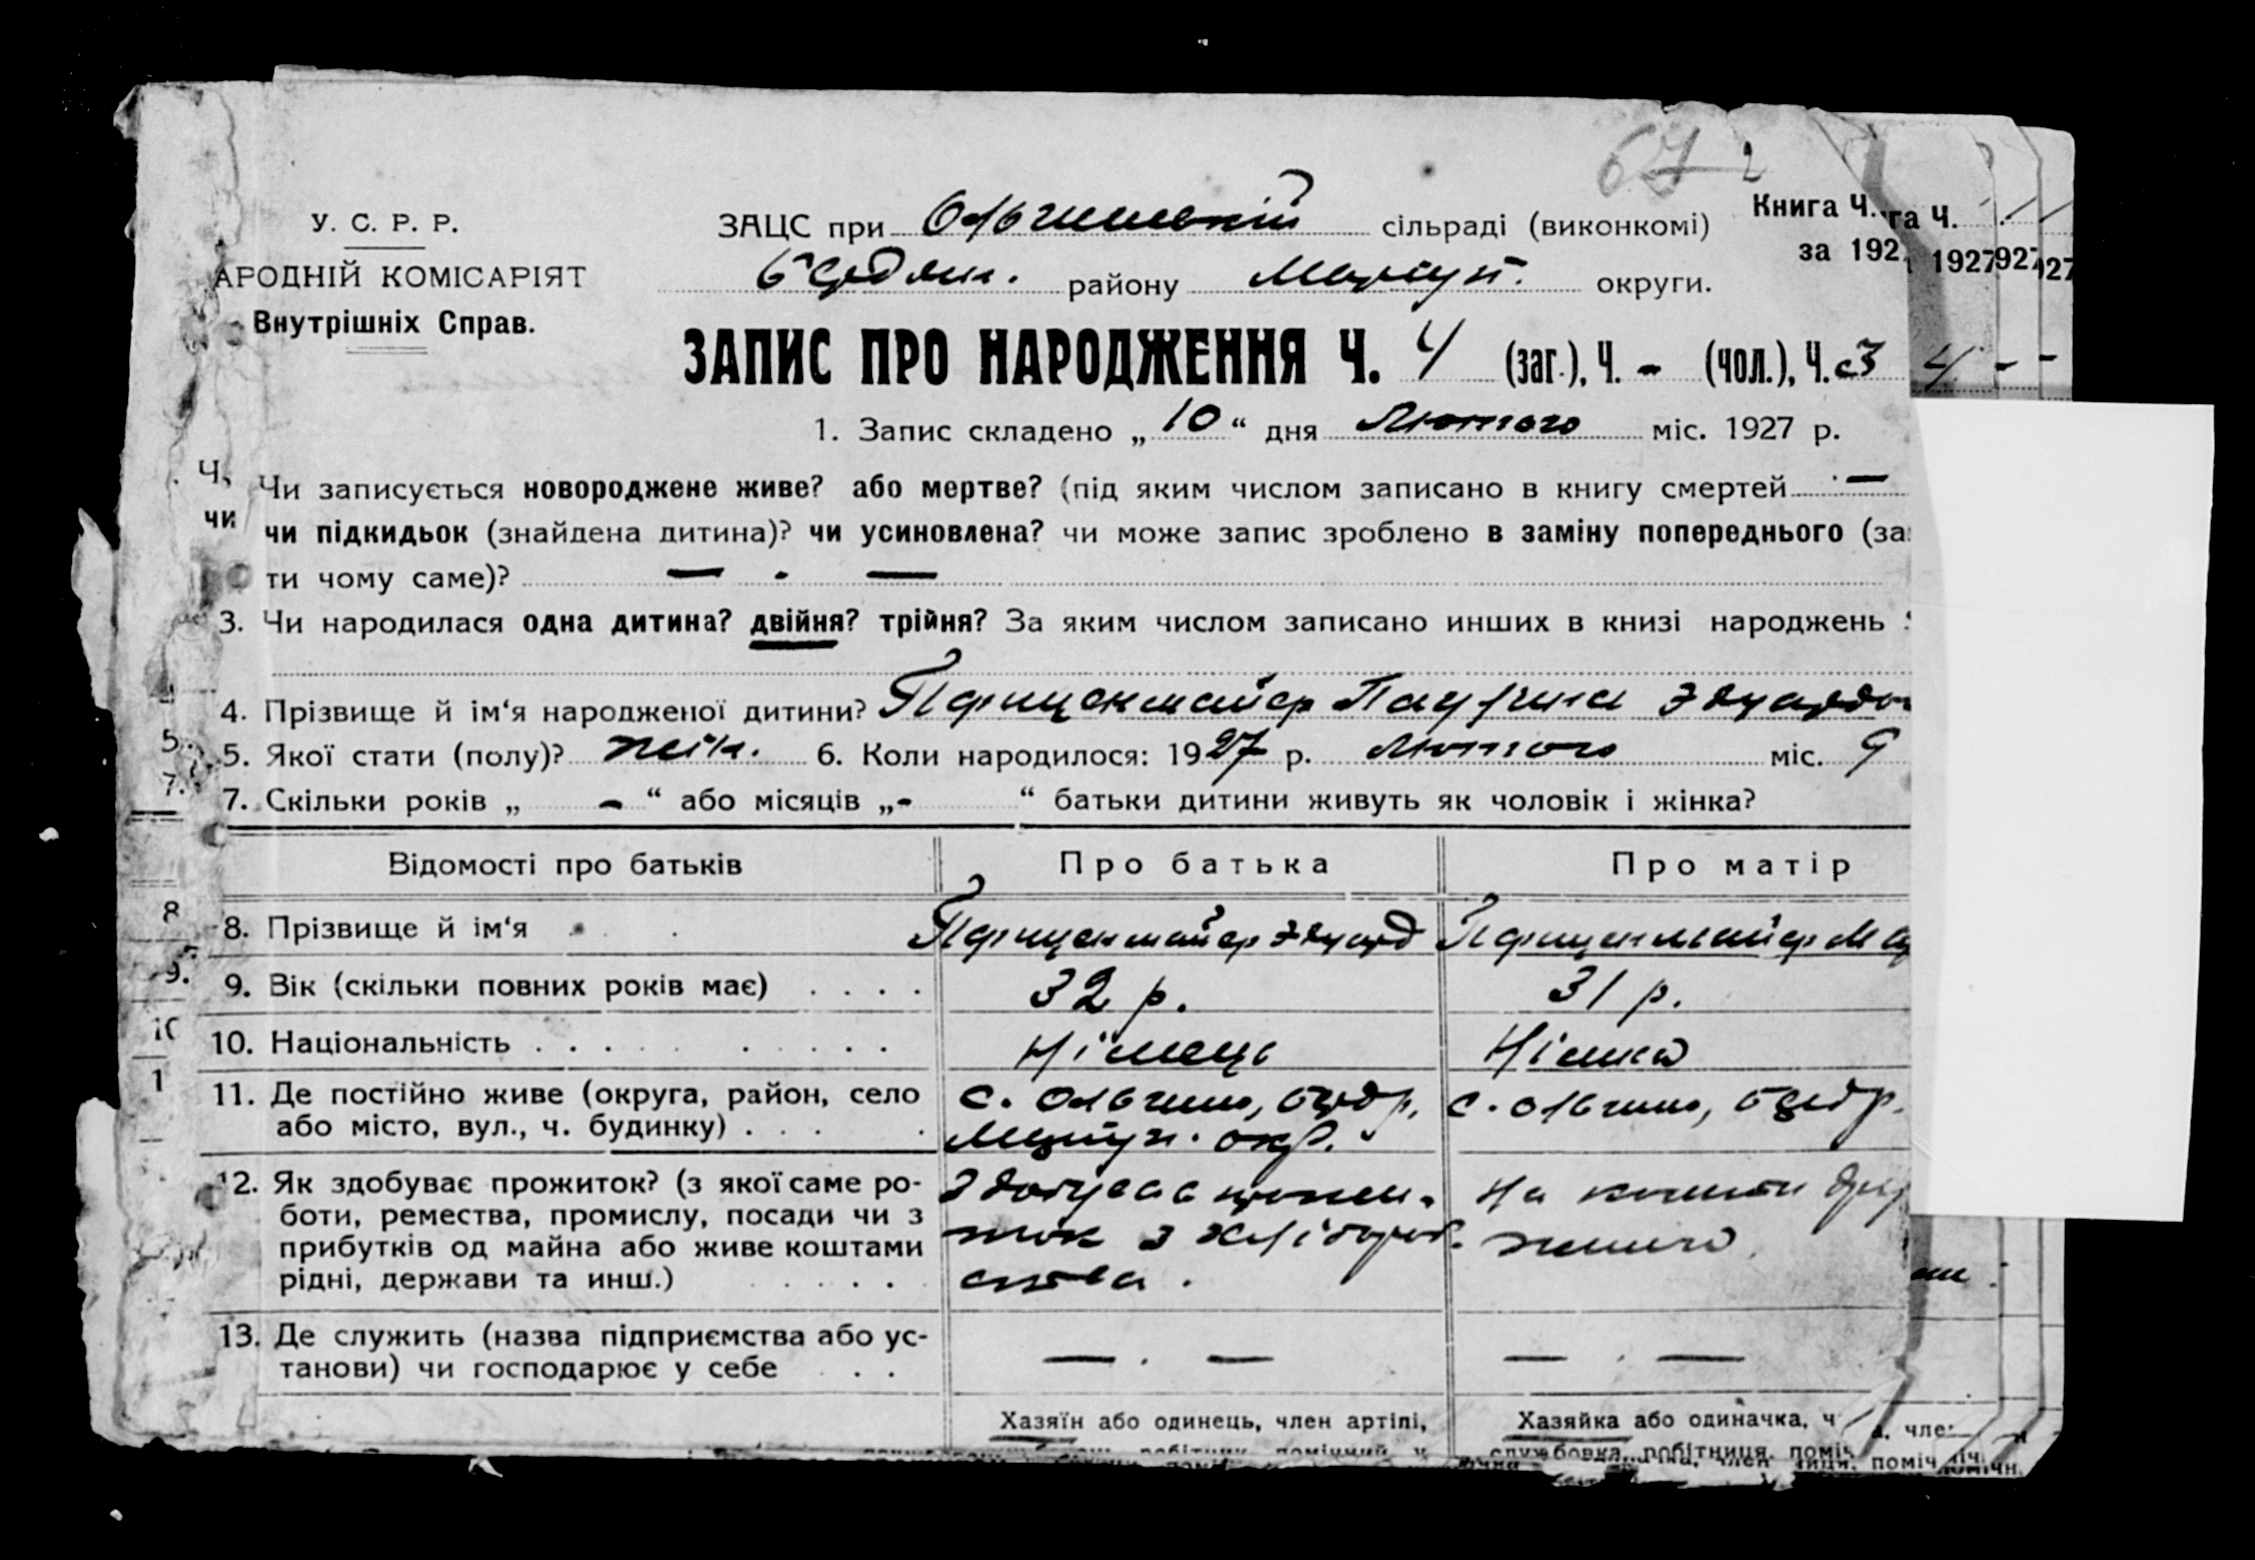 67 2
У. С. Р. Р.
АРОДНІЙ КОМІСАРІЯТ
Внутрішніх Справ.
ЗАЦС при Ольгинській сільраді (виконкомі)
району Маріуп. округи.
Книга Ч.
за 192
га Ч.
1927
927
27
ЗАПИС ПРО НАРОДЖЕННЯ Ч. 4 (заг.), Ч. - (чол.), Ч. 3
4 - -
1. Запис складено „10“ дня Лютого міс. 1927 р.
Чи записується новороджене живе? або мертве? (під яким числом записано в книгу смертей —
чи підкидьок (знайдена дитина)? чи усиновлена? чи може запис зроблено в заміну попереднього (за
ти чому саме)? — . —
3. Чи народилася одна дитина? двійня? трійня? За яким числом записано инших в книзі народжень
4. Прізвище й ім‘я народженої дитини? Пфиценмайер Паулина Эдуардов
5. Якої стати (полу)? жін. 6. Коли народилося: 1927 р. Лютого міс. 9
7. Скільки років „ - “ або місяців „ - “ батьки дитини живуть як чоловік і жінка?
Відомості про батьків Про батька Про матір
8. Прізвище й ім‘я Пфиценмайер Эдуард Пфиценмайер
9. Вік (скільки повних років має) . . . . 32 р. 31 р.
10. Національність . . . . . . . . . . Німець Німка
11. Де постійно живе (округа, район, село
або місто, вул., ч. будинку) . . . .
с. Ольгино,
окр.
с. Ольгино,
12. Як здобуває прожиток? (з якої саме ро-
боти, ремества, промислу, посади чи з
прибутків од майна або живе коштами
рідні, держави та инш.) . . . . . .
Здобуває прожи-
ток з хлібороб-
ства.
На кошти
13. Де служить (назва підприємства або ус-
танови) чи господарює у себе . . .
— . — — . —
Хазяїн або одинець, член артілі,
Хазяйка або одиначка, ч
службовка, робітниця, поміч